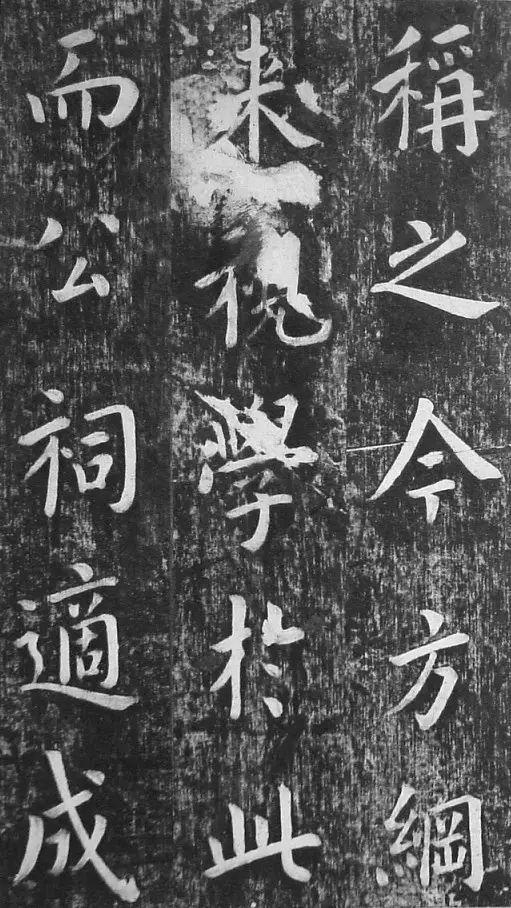 稱之今方綱
来視學於此
而公祠適成